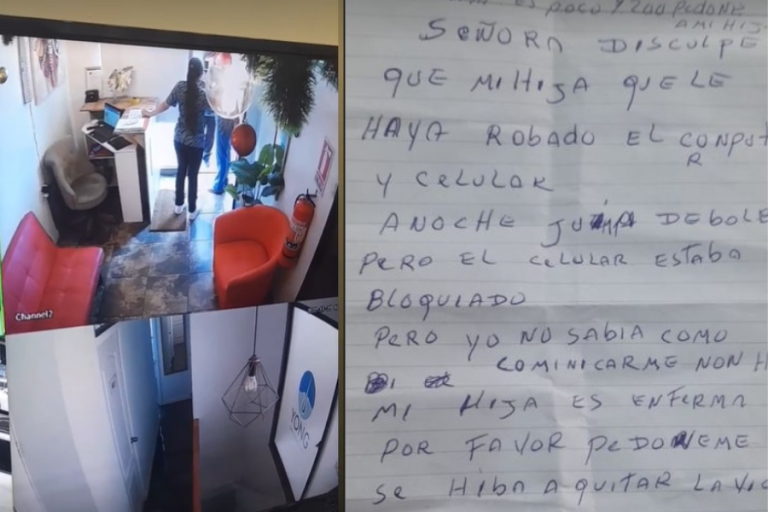 Channel2
YONG
ES POCO Y 200 PEDONE
A MI HIJ
SEÑORA DISCULPE
QUE MI HIJA QUE LE
HAYA ROBADO EL CONPUT
R
Y CELULAR
ANOCHE DEBOLE
PERO EL CELULAR ESTABA
BLOQUIADO
PERO YO NO SABIA COMO
COMINICARME NON H
MI HIJA ES ENFERMA
POR FAVOR PEDONEME
SE HIBA A QUITAR LA VI